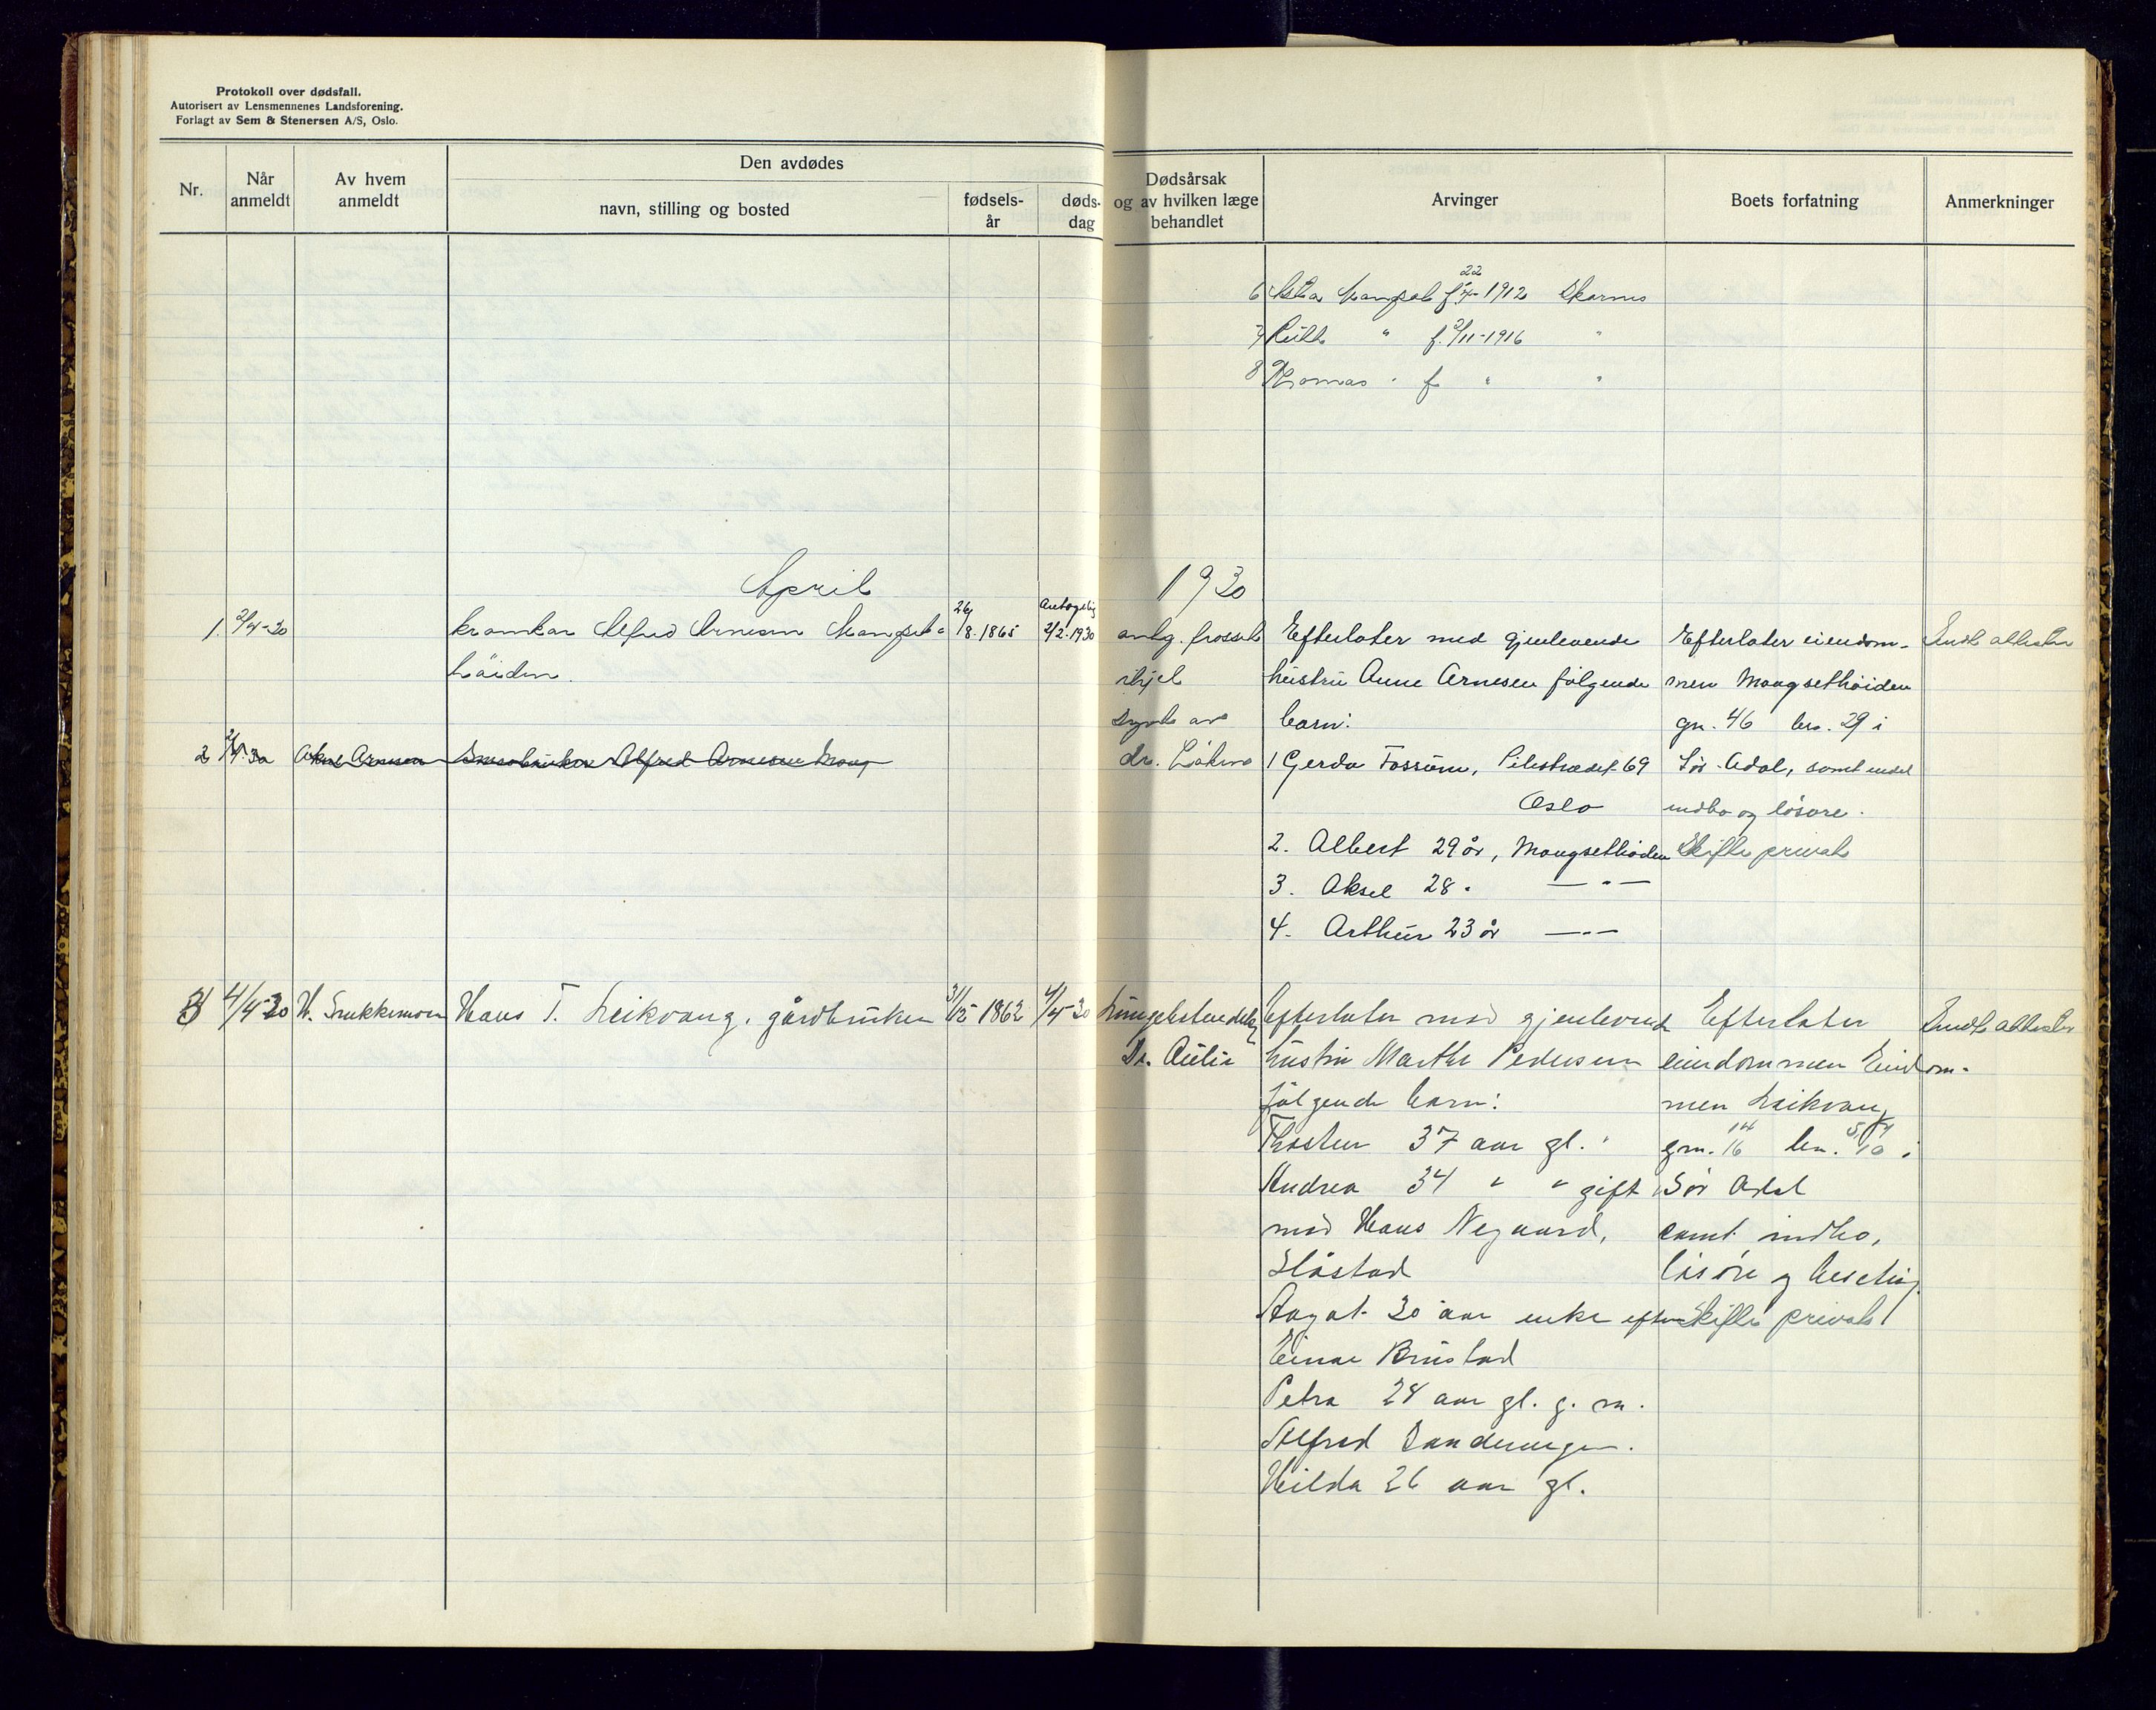 Protokoll over dødsfall.
Autorisert av Lensmennenes Landsforening.
Forlagt av Sem & Stenersen A/S, Oslo.
Nr.
Når anmeldt
Av hvem anmeldt
Den avdødes
navn, stilling og bosted
fødsels-år
døds-dag
Dødsårsak og av hvilken læge behandlet
Arvinger
Boets forfatning
Anmerkninger
6 Mangset f 22/4-1912 Skarnes
7 Ruth " f. 2/11-1916 "
8 Thomas " f " "
April 1930
1. 2/4-30
Alfred Arnesen Mangset-
høiden.
26/8-1865
Antagelig 2/2-1930
antg. frosset
ihjel
Synt av
dr.
Efterlater med gjenlevende
hustru Anne Arnesen følgende
barn:
1 Gerda Fossum, Pilestrædet 69
Oslo
2. Albert 29 år, Mangsethøiden
3. Aksel 28 " — " —
4. Arthur 23 år — " —
Efterlater eiendom-
men Mangsethøiden
gn. 46 br. 29 i
Sør-Odal, samt endel
indbo og løsøre.
Skifte privat
Sendt attester
2 2/4-30 Aksel Arnesen Småbruker Alfred Arnesen Mang
3 4/4-30
Hans T. Leikvang, gårdbruker
31/12 1862
4/4-30
Lungebetendelse
Dr. Aulie
Efterlater med gjenlevende
hustru Marthe Pedersen
følgende barn:
Thostein 37 aar gl. "
Andrea 34 " " gift
med Hans Negaard,
Slåstad
Aagot 30 aar enke efter
Einar Brustad
Petra 28 aar gl. g. m.
Alfred Sanderengen.
Hilda 26 aar gl.
Efterlater
eiendommen Eiendom-
men Leikvang
grn. 14 16 brn. 5,4 10 i
Sør Odal
samt indbo,
løsøre og besetning.
Skifte privat
Sendt attester